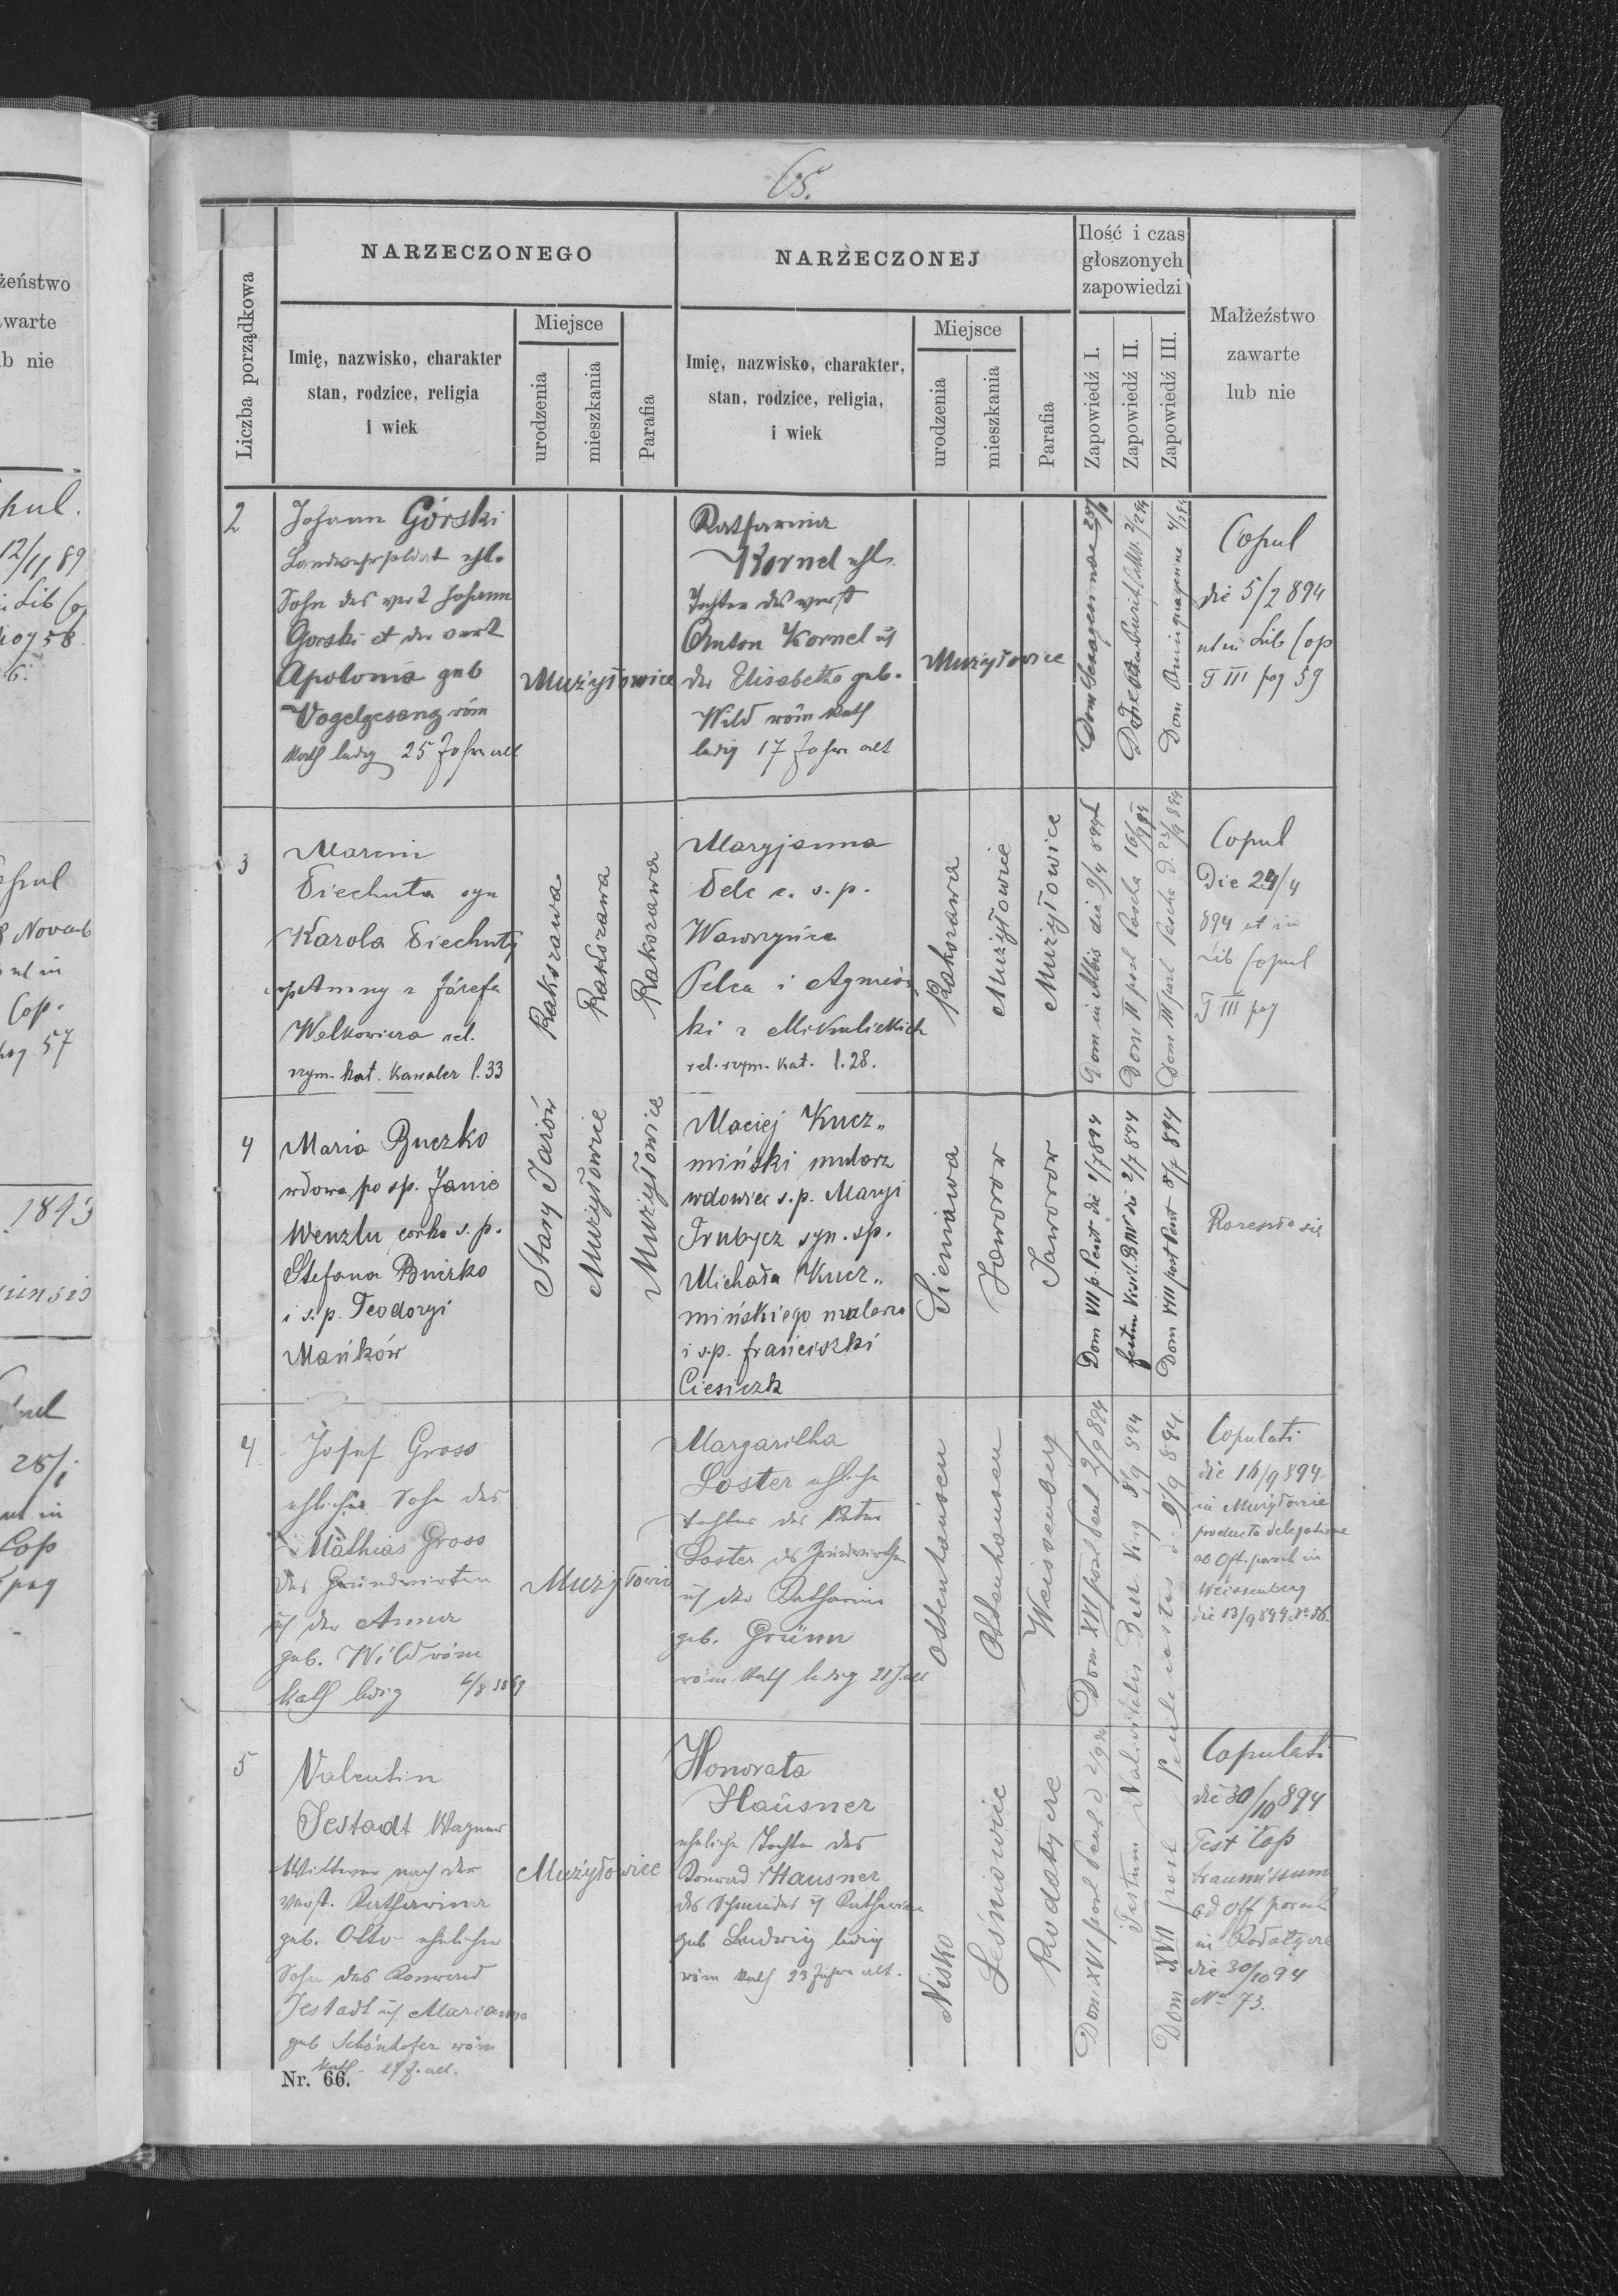 65.
Liczba porządkowa
NARZECZONEGO
Imię, nazwisko, charakter
stan, rodzice, religia
i wiek
Miejsce
urodzenia
mieszkania
Parafia
NARZECZONEJ
Imię, nazwisko, charakter,
stan, rodzice, religia,
i wiek
Miejsce
urodzenia
mieszkania
Parafia
Ilość i czas
głoszonych
zapowiedzi
Zapowiedź I.
Zapowiedź II.
Zapowiedź III.
Małżeństwo
zawarte
lub nie
2
Johann Górski
Landwehrsoldat ehl.
Sohn des verst Johann
Gorski et der verst
Apolonia geb
Vogelgesang röm
Kath ledig 25 Jahre alt
Mużyłowice
Katharina
Kornel ehl
Tochter des verst
Anton Kornel u
der Elisabetha geb.
Wild röm Kath
ledig 17 Jahre alt
Mużyłowice
Dom Sexagesimae
Dom Quinquagesima 4/2 94
Copul
die 5/2 894
ut in Lib Cop
T III pag 59
3
Marcin
Piechuta syn
Karola Piechuty
Anny z Józefa
rel.
rzym. kat. Kawaler l. 33
Rakszawa
Rakszawa
Rakszawa
Maryjanna
Pelc c. s. p.
Wawrzyńca
Pelca i Agniesz
ki z Mikulickich
rel. rzym. kat. l. 28.
Rakszawa
Mużyłowice
Mużyłowice
Dom in Albis die
Dom II post Pascha
Dom III post Pascha
Copul
Die 24/4
894 ut in
Lib Copul
T III pag
4
Maria Buczko
wdowa po sp. Janie
Wenzlu córka s. p.
Stefana Buczko
i s. p. Teodozyi
Mańków
Stary Jarów
Mużyłowice
Mużyłowice
Maciej Kucz„
miński mularz
wdowiec s. p. Maryi
Trubycz syn. sp.
Michała Kucz„
mińskiego malarza
i s.p. franciszki
Ciesiczk
Sieniawa
Jaworow
Jaworow
Dom VII p. Pent die 1/7 894
festum Visit. BMV die 2/7 894
Dom VIII post Pent 8/7 894
Rozeszło się
4
Josef Gross
ehlicher Sohn des
Mathias Gross
des Grundwirten
u der Anna
geb. Wild röm
kath ledig
Mużyłowice
Margaritha
Loster ehliche
tochter des Peter
Loster des Grundwirthen
u der Katharina
geb. Grünn
röm Kath ledig 21 J. alt
Ottenhausen
Ottenhausen
Weissenberg
Dom XVI post Pent 2/9 894
Festum Nativitatis B.M. Virg 8/9 894
Dom XVII post Pentecostes d 9/9 894.
Copulati
die 16/9 894
in Mużyłowice
producta delegatione
ab Off. paroch in
Weissenberg
die 13/9 894
5
Valentin
Jestadt Wagner
Wittwer nach der
verst. Katharina
geb. Otto ehelicher
Sohn des Konrad
Jestadt u Marianna
geb Schönhofer röm
Kath
Mużyłowice
Honorata
Hausner
eheliche Tochter des
Konrad Hausner
des Schmiedes u Katharina
geb Ludwig ledig
röm Kath 23 Jahre alt.
Nisko
Leśniowice
Rodatycze
Dom XVI post Pent d 2/9 94
Copulati
die 30/10 894
Test Cop
transmissum
ad Off paroch
in Rodatycze
die 30/10 94
No 73.
Nr. 66.
żeństwo
warte
b nie
12/11 89
Cop.
pag 57
1893